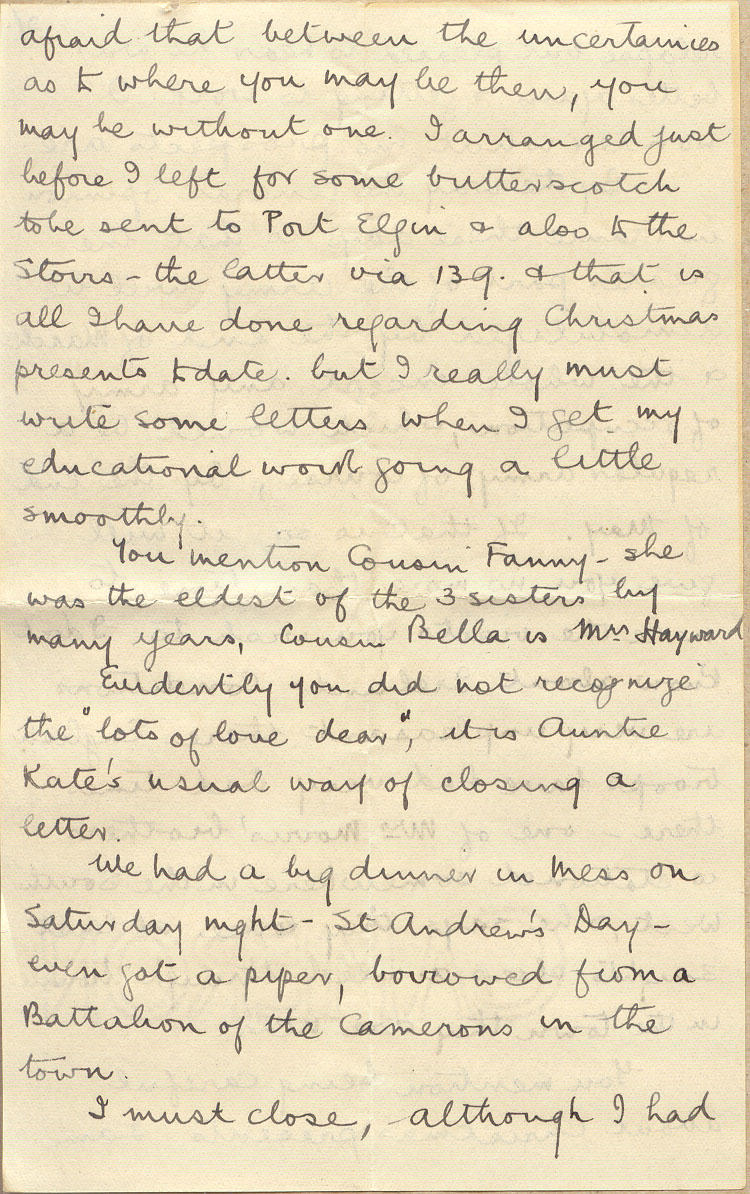 afraid that between the uncertainies
as to where you may be then, you
may be without one. I arranged just
before I left for some butterscotch
to be sent to Port Elgin & also to the
Stovrs - the latter via 139. & that is
all I have done regarding Christmas
presents to date. but I really must
write some letters when I get my
educational work going a little
smoothly.
You mention Cousin Fanny - she
was the eldest of the 3 sisters by
many years, Cousin Bella is Mrs Hayward
Evidently you did not recognize
the "lots of love dear", it is Auntie
Kate's usual way of closing a
letter.
We had a big dinner in Mess on
Saturday night - St Andrew's Day -
even got a piper, borrowed from a
Battalion of the Camerons in the
town.
I must close, although I had